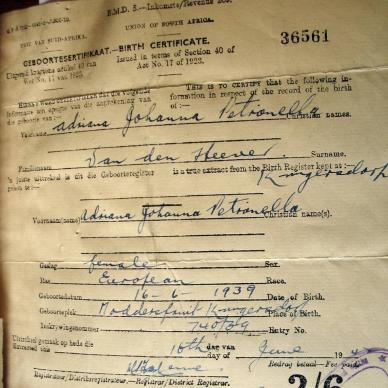 B.M.D. 5.—Inkomste/Revenue
UNIE VAN SUID-AFRIKA.
UNION OF SOUTH AFRICA.
36561
GEBOORTESERTIFIKAAT.—BIRTH CERTIFICATE.
Uitgereik kragtens artikel 40 van Wet No. 17 van 1923.
Issued in terms of Section 40 of Act No. 17 of 1923.
THIS IS TO CERTIFY that the following information in respect of the record of the birth of:—
Adriana Johanna Petronella Christian names.
Familienaam Van den Heever. Surname.
is a true extract from the Birth Register kept at:— Krugersdorp
Voornaam(name) Adriana Johanna Petronella Christian name(s).
Geslag female Sex.
Ras European Race.
Geboortedatum 16-6-1939 Date of Birth.
Geboorteplek Modderfontein Krugersdorp Place of Birth.
Inskrywingsnommer 740/39 Entry No.
Uitgereik gemaak op hede die 16th dae van
day of June 19
Bedrag betaal—Fee paid.
Registrateur/Distriksregistrateur—Registrar/District Registrar.
2/6